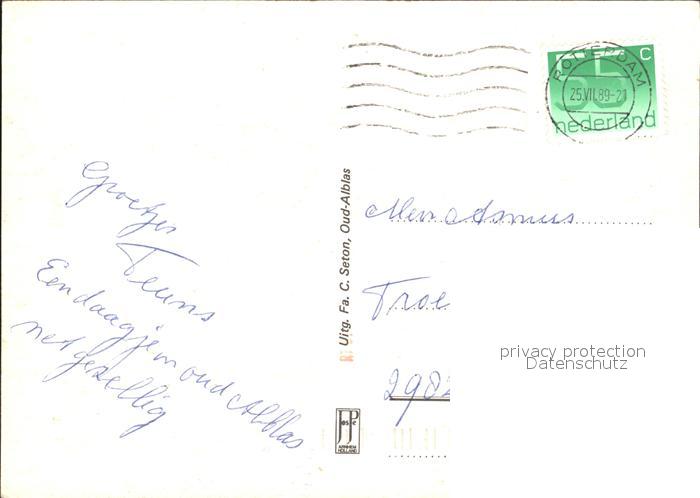 Groetjes
Teuns
Een daagje in oud Alblas
net gezellig
Uitg. Fa. C. Seton, Oud-Alblas
ROTTERDAM
25.VII.89-21
C
55
nederland
Troe
2982
privacy protection
Datenschutz
JosPé
ARNHEM
HOLLAND